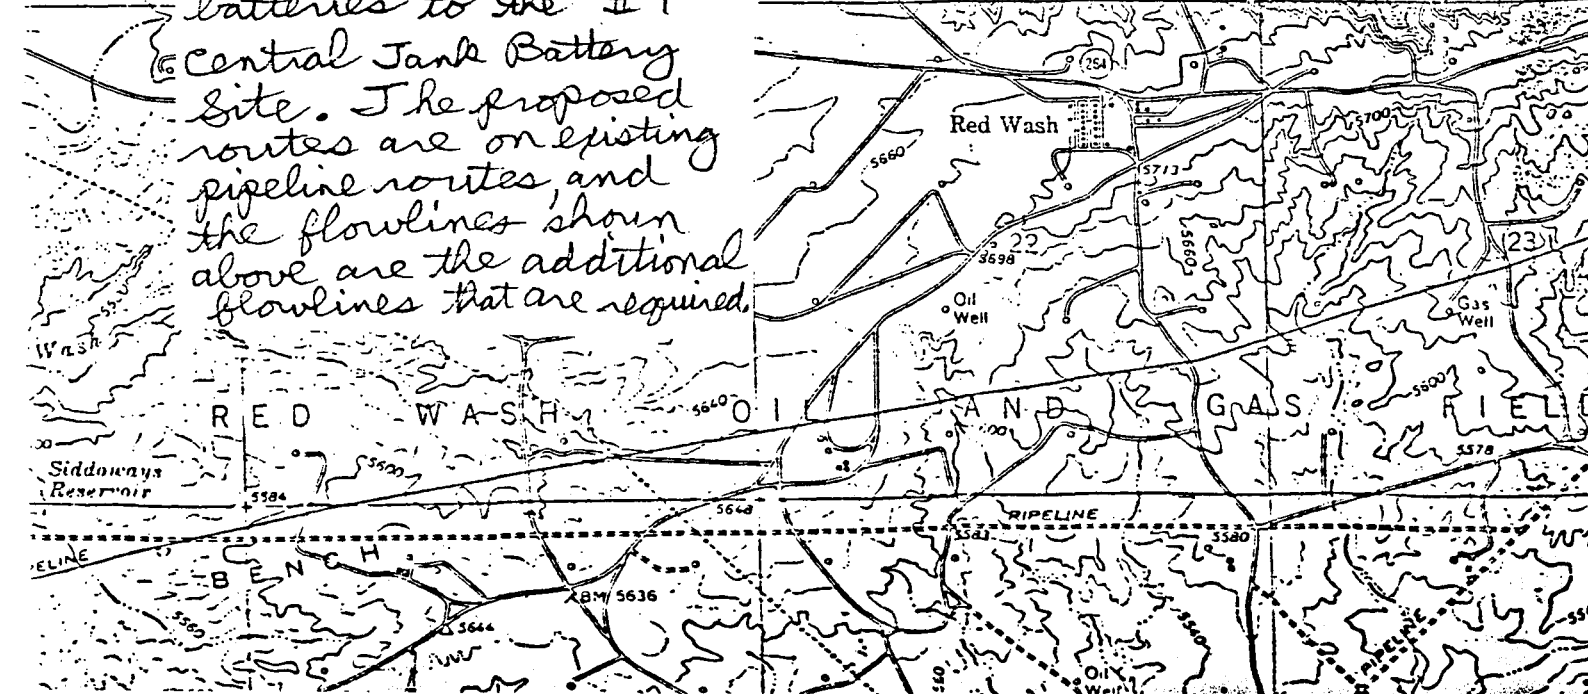 batteries to the
Central Tank Battery
Site. The proposed
routes are on existing
pipeline routes, and
the flowlines shown
above are the additional
flowlines that are required.
264
Red Wash
5660
5700
5713
22
5698
5660
23
Oil
Well
Gas
Well
Wash
RED WASH OIL AND GAS FIEL
5640
5600
Siddoways
Reservoir
5600
5578
5584
5648
PIPELINE
5583
5580
PELINE
BENCH
BM 5636
5560
5644
5540
PIPELINE
Oil
Well